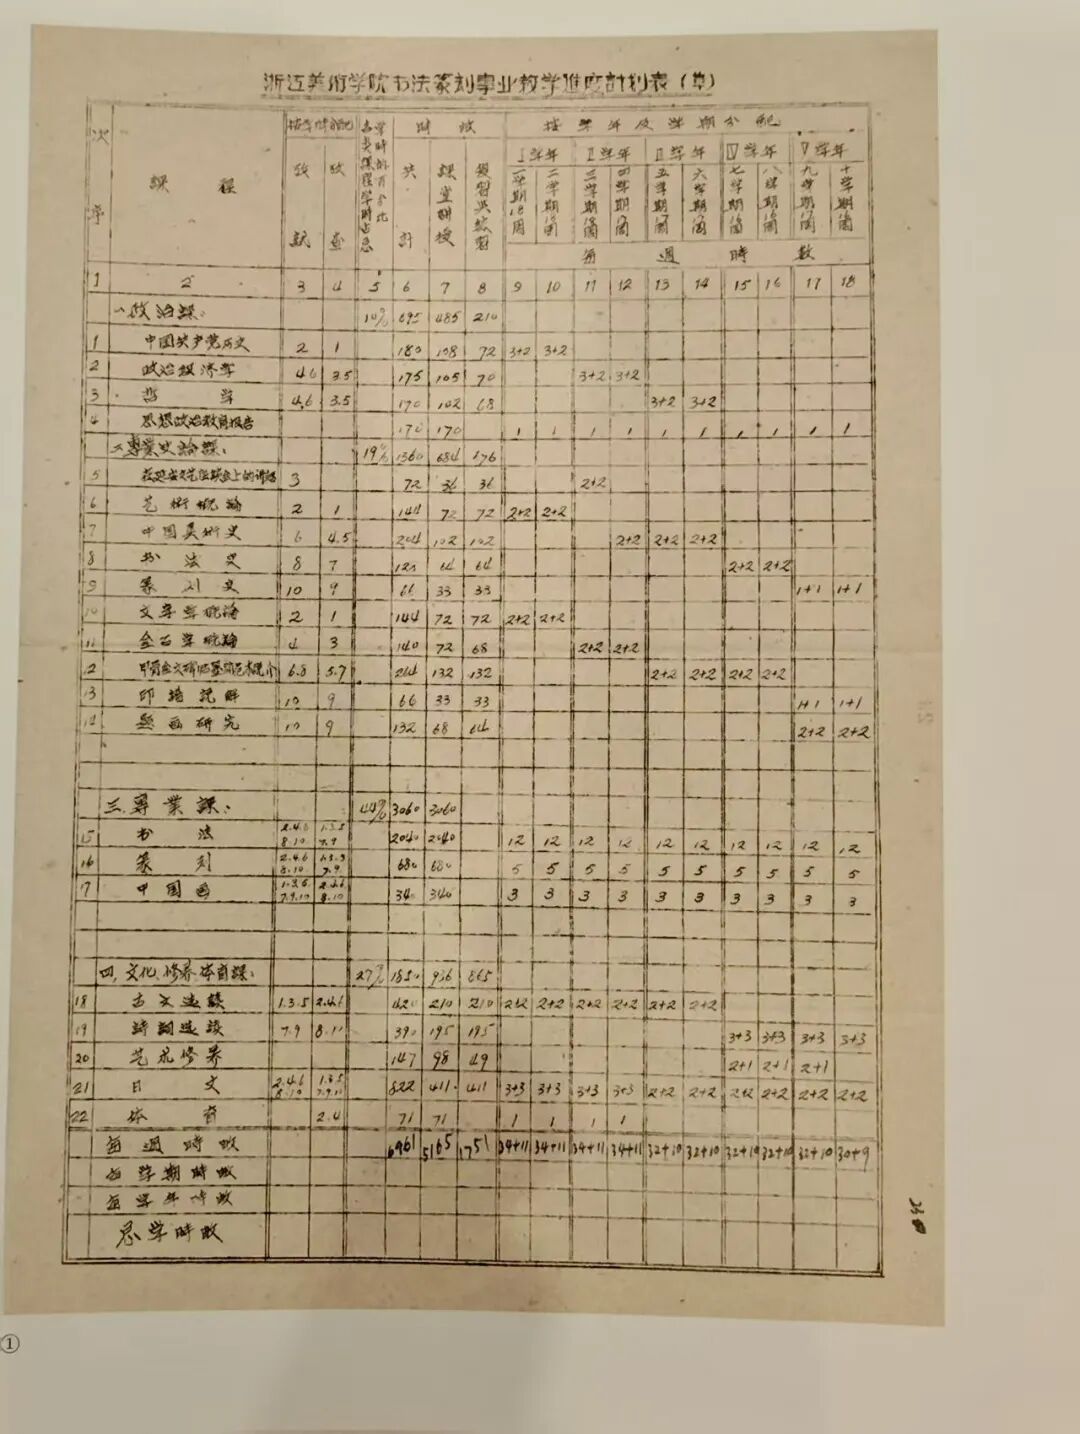 浙江美術学院书法篆刻専业教学進度計划表（草）
次序 課程 按学期分配 考試 考查 各类課程学時占总学時的百分比 時数 共計 課堂講授 復習与練習 按学年及学期分配
I学年 II学年 III学年 IV学年 V学年
一学期18周 二学期 三学期 四学期 五学期 六学期 七学期 八学期 九学期 十学期
每週時数
1 2 3 4 5 6 7 8 9 10 11 12 13 14 15 16 17 18
一、政治課： 10% 695 485 210
1 中国共产党历史 2 1 180 108 72 3+2 3+2
2 政治经济学 4.6 3.5 175 105 70 3+2 3+2
3 哲学 4.6 3.5 170 102 68 3+2 3+2
4 思想政治教育报告 170 170 1 1 1 1 1 1 1 1 1 1
二、專業史論課： 19% 1360 684 176
5 在延安文艺座談会上的讲話 3 72 36 36 2+2
6 艺術概論 2 1 144 72 72 2+2 2+2
7 中国美術史 6 4.5 204 102 102 2+2 2+2 2+2
8 书法史 8 7 64 64 2+2 2+2
9 篆刻史 10 9 66 33 33 1+1 1+1
10 文字学概論 2 1 144 72 72 2+2 2+2
11 金石学概論 4 3 140 72 68 2+2 2+2
12 6.8 5.7 264 132 132 2+2 2+2 2+2 2+2
13 印譜 10 9 66 33 33 1+1 1+1
14 题画研究 10 9 132 68 64 2+2 2+2
三、專業課： 44% 3060 3060
15 书法 2.4.6 8.10 1.3.5 7.9 2040 2040 12 12 12 12 12 12 12 12 12 12
16 篆刻 2.4.6 8.10 1.3.5 7.9 680 680 5 5 5 5 5 5 5 5 5 5
17 中国画 7.9.10 8.10 340 340 3 3 3 3 3 3 3 3 3 3
四、文化、修养体育課： 27% 1850 936 865
18 古文选讀 1.3.5 2.4.6 420 210 210 2+2 2+2 2+2 2+2 2+2 2+2
19 詩詞选讀 7.9 8.10 390 195 195 3+3 3+3 3+3 3+3
20 艺术修养 147 98 49 2+1 2+1 2+1
21 日文 2.4.6 8.10 1.3.5 7.9 822 411 411 3+3 3+3 3+3 3+3 2+2 2+2 2+2 2+2 2+2 2+2
22 体育 2.4 71 71 1 1 1 1
每週時数 6961 5165 1751 34+11 34+11 34+11 34+11 32+10 32+10 32+10 32+10 32+10 30+9
每学期時数
每学年時数
总学時数
①